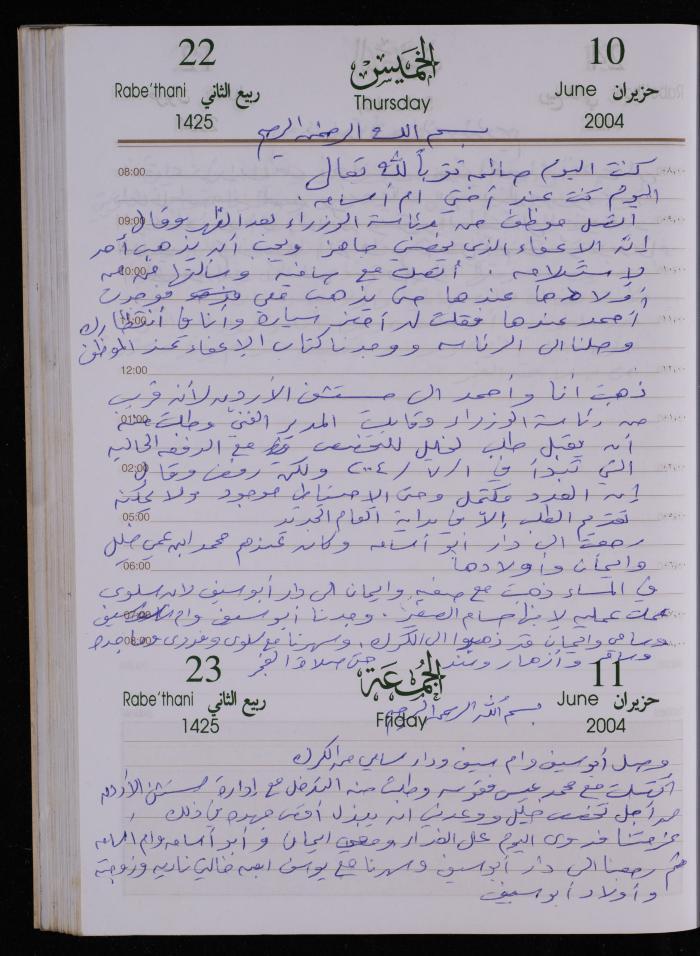 22 الخميس 10
Rabe'thani ربيع الثاني Thursday June حزيران
1425 2004
بسم الله الرحمن الرحيم
08:00 كنت اليوم صائمه تقرباً لله تعالى
اليوم كنت عند أختي ام أسامه .
09:00 اتصل موظف من رئاسة الوزراء بعد الظهر وقال
إن الإعفاء الذي يخصني جاهز ويجب أن يذهب أحد
10:00 لإستلامه . أتصلت مع صافية وسألتها عن
أولادها عندها حتى يذهب معي فوجدت
11:00 أحمد عندها فقلت له أحضر سيارة وأنا في أنتظارك
وصلنا الى الرئاسه ووجدنا كتاب الإعفاء عند الموظف
12:00
ذهبت أنا وأحمد الى مستشفى الأردن لأنه قريب
01:00 من رئاسة الوزراء وقابلت المدير الفني وطلبت منه
أن يقبل طلب لخليل للتخصص مع الدفعه الحاليه
02:00 التي تبدأ في ١/٧/٢٠٠٤ ولكنه رفض وقال
إن العدد مكتمل وحتى الإحتياط موجود ولا يمكنه
05:00 تقديم الطلب إلا في بداية العام الجديد
رجعت الى دار أبو أسامه وكان عندهم محمد ابن عمي خليل
06:00 وإيمان وأولادها
في المساء ذهبت مع صفيه وإيمان الى دار أبو سيف لأن سلوى
07:00 عملت عمليه لابنها حسام الصغير . وجدنا أبو سيف وام سيف
08:00 وسامي وإيمان قد ذهبوا الى الكرك ، وسهرنا مع سلوى وفدوى وماجده
وأزهار حتى صلاة الفجر
23 الجمعة 11
Rabe'thani ربيع الثاني Friday June حزيران
1425 2004
بسم الله الرحمن الرحيم
وصل أبو سيف وام سيف ودار سامي من الكرك
اتصلت مع محمد عيس وطلبت منه التدخل مع إدارة مستشفى الأردن
من أجل تخصص خليل ووعدني أنه يبذل أقصى جهده في ذلك ،
عزمتنا فدوى اليوم على الغداء ومعي إيمان وأبو أسامه وام أسامه
ثم رجعنا الى دار أبو سيف وسهرنا مع يوسف ابن خالتي ناديه وزوجته
وأولاد أبو سيف